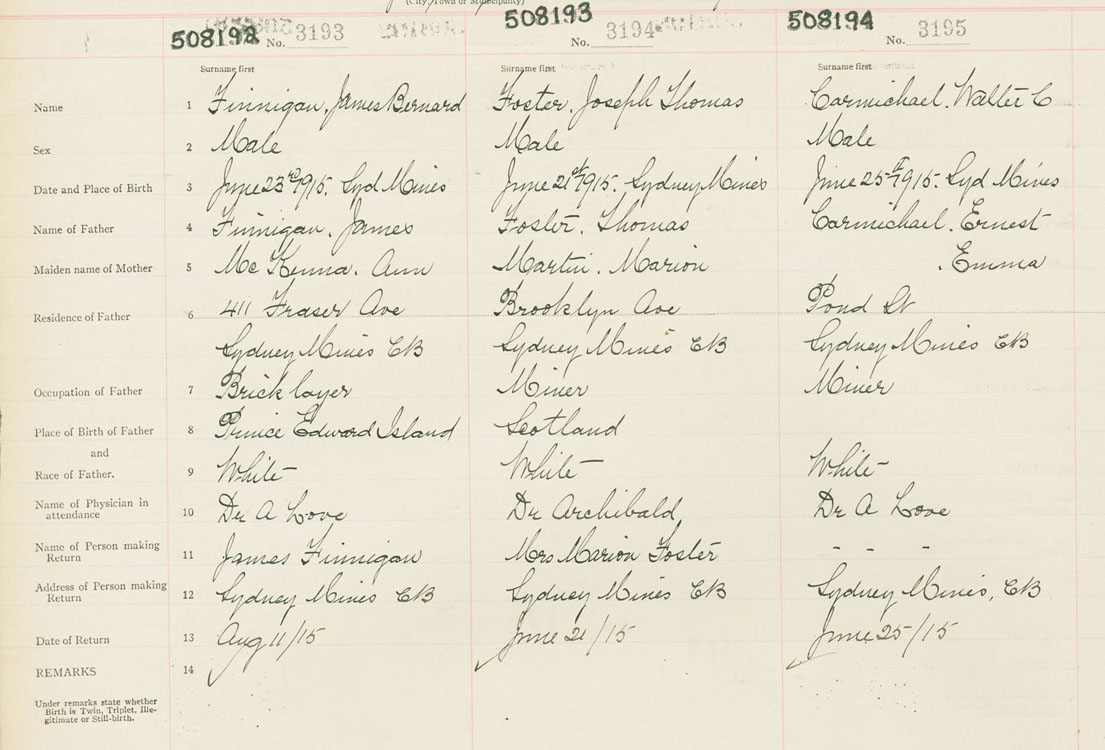 (City, Town or Municipality)
508192 No. 3193 508193 No. 3194 508194 No. 3195
Surname first Surname first Surname first
Name 1 Finnigan, James Bernard Foster, Joseph Thomas Carmichael. Walter C
Sex 2 Male Male Male
Date and Place of Birth 3 June 23rd 1915. Syd Mines June 21st 1915. Sydney Mines June 25th 1915. Syd. Mines
Name of Father 4 Finnigan. James Foster. Thomas Carmichael. Ernest
Maiden name of Mother 5 Mc Kenna. Ann Martin. Marion . Emma
Residence of Father 6 411 Fraser Ave Brooklyn Ave Pond St
Sydney Mines CB Sydney Mines CB Sydney Mines CB
Occupation of Father 7 Brick layer Miner Miner
Place of Birth of Father 8 Prince Edward Island Scotland
and
Race of Father. 9 White White White
Name of Physician in attendance 10 Dr A Love Dr Archibald, Dr A Love
Name of Person making Return 11 James Finnigan Mrs Marion Foster - - -
Address of Person making Return 12 Sydney Mines CB Sydney Mines CB Sydney Mines, CB
Date of Return 13 Aug 11/15 June 21/15 June 25/15
REMARKS 14
Under remarks state whether
Birth is Twin, Triplet, Ille-
gitimate or Still-birth.